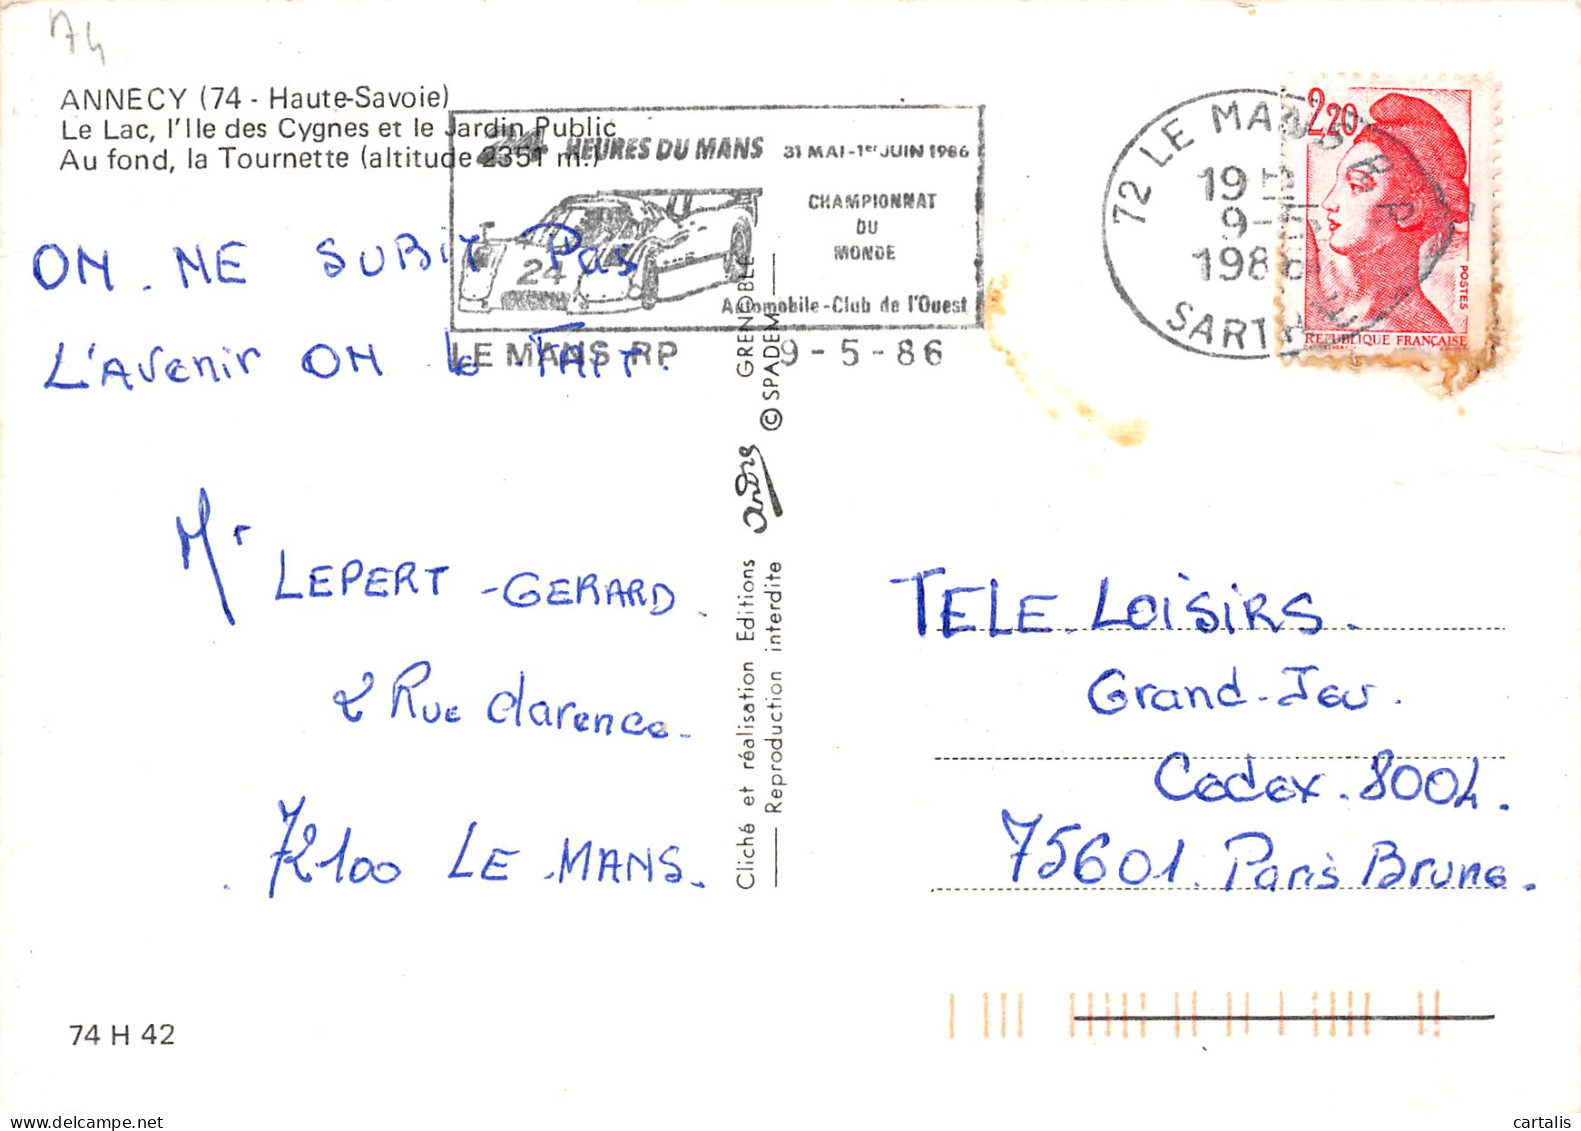 74
ANNECY (74 - Haute-Savoie)
Le Lac, l'Ile des Cygnes et le Jardin Public
Au fond, la Tournette (altitude 2351 m.)
24 HEURES DU MANS 31 MAI-1er JUIN 1986
CHAMPIONNAT
DU
MONDE
24
Automobile-Club de l'Ouest
LE MANS RP 9-5-86
72 LE MANS R P
19 H
9-5
1986
SARTHE
2,20
POSTES
REPUBLIQUE FRANÇAISE
ON. NE SUBIT Pas
L'Avenir ON le FAIT.
Mr LEPERT-GERARD.
2 Rue Clarence.
72100 LE.MANS.
Cliché et réalisation Editions André GRENOBLE
Reproduction interdite © SPADEM
TELE.LOiSiRS.
Grand-Jeu.
Cedex.8004.
75601.Paris Brune.
74 H 42
cartalis